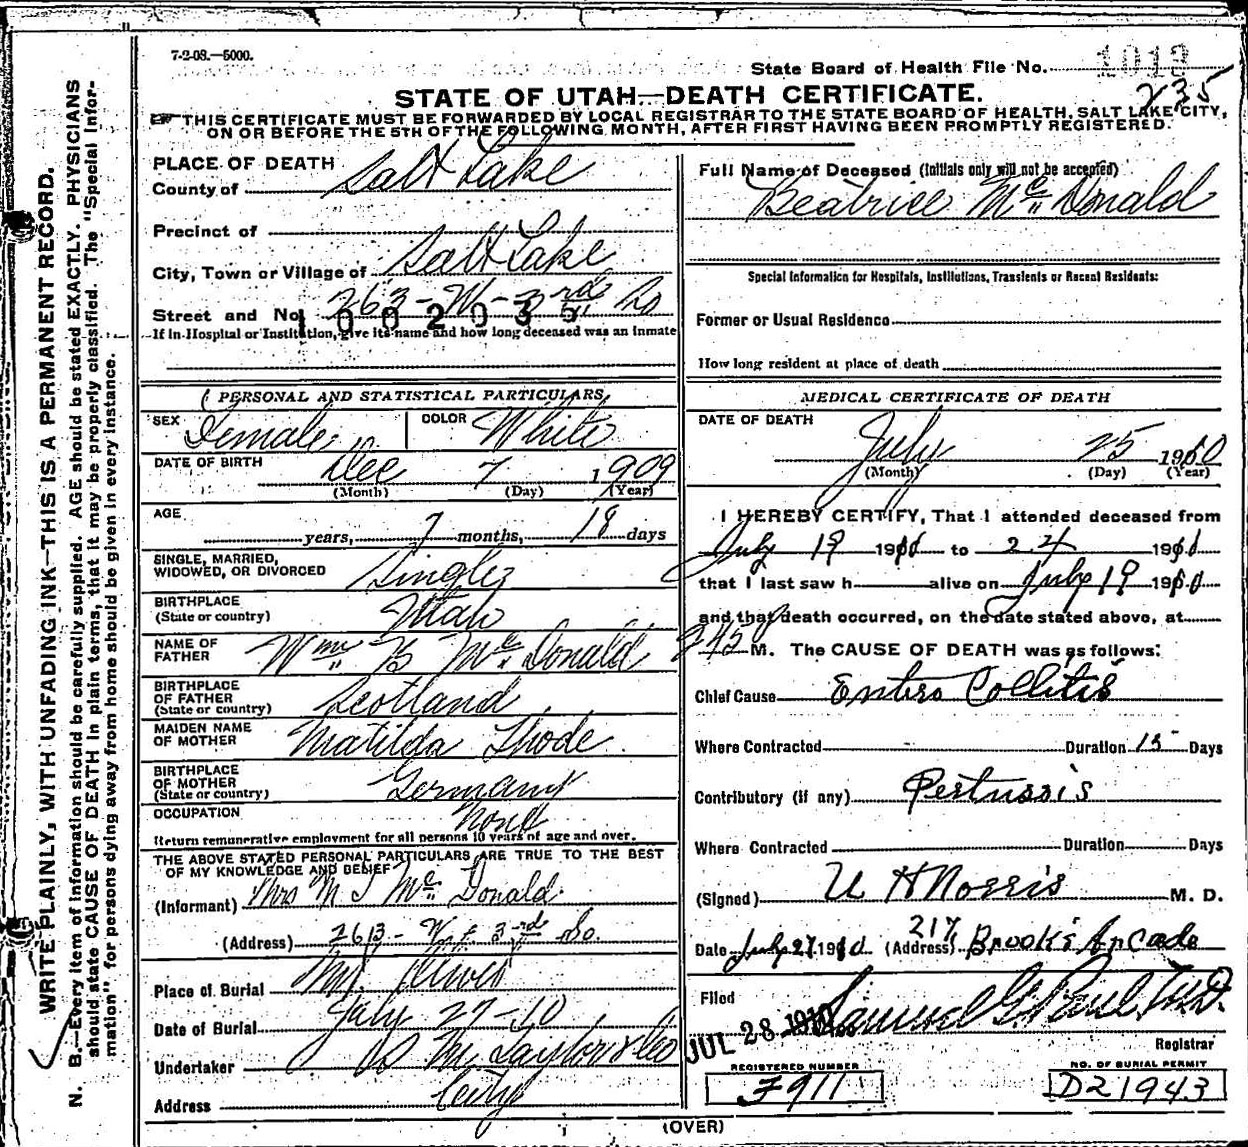 7-2-08.—5000.
State Board of Health File No. 1013
235
STATE OF UTAH—DEATH CERTIFICATE.
THIS CERTIFICATE MUST BE FORWARDED BY LOCAL REGISTRAR TO THE STATE BOARD OF HEALTH, SALT LAKE CITY,
ON OR BEFORE THE 5TH OF THE FOLLOWING MONTH, AFTER FIRST HAVING BEEN PROMPTLY REGISTERED.
WRITE PLAINLY, WITH UNFADING INK—THIS IS A PERMANENT RECORD.
N. B.—Every item of information should be carefully supplied. AGE should be stated EXACTLY. PHYSICIANS
should state CAUSE OF DEATH in plain terms, that it may be properly classified. The "Special Infor-
mation" for persons dying away from home should be given in every instance.
PLACE OF DEATH
County of Salt Lake
Precinct of
City, Town or Village of Salt Lake
Street and No. 263 - W - 3rd So
1002035
If in Hospital or Institution, give its name and how long deceased was an inmate
PERSONAL AND STATISTICAL PARTICULARS
SEX Female COLOR White
DATE OF BIRTH Dec 7 1909
(Month) (Day) (Year)
AGE
years, 7 months, 18 days
SINGLE, MARRIED,
WIDOWED, OR DIVORCED Single
BIRTHPLACE
(State or country) Utah
NAME OF
FATHER Wm B McDonald
BIRTHPLACE
OF FATHER
(State or country) Scotland
MAIDEN NAME
OF MOTHER Matilda Thode
BIRTHPLACE
OF MOTHER
(State or country) Germany
OCCUPATION None
Return remunerative employment for all persons 10 years of age and over.
THE ABOVE STATED PERSONAL PARTICULARS ARE TRUE TO THE BEST
OF MY KNOWLEDGE AND BELIEF
(Informant) Mrs M T McDonald
(Address) 263 - W 3rd So.
Place of Burial Mt Olivet
Date of Burial July 27-10
Undertaker S M Taylor & Co
Address City
Full Name of Deceased (Initials only will not be accepted)
Beatrice McDonald
Special Information for Hospitals, Institutions, Transients or Recent Residents:
Former or Usual Residence
How long resident at place of death
MEDICAL CERTIFICATE OF DEATH
DATE OF DEATH
July 25 1910
(Month) (Day) (Year)
I HEREBY CERTIFY, That I attended deceased from
July 19 1910 to 24 1910
that I last saw h alive on July 19 1910
and that death occurred, on the date stated above, at
245 M. The CAUSE OF DEATH was as follows:
Chief Cause Entero Collitis
Where Contracted Duration 15 Days
Contributory (if any) Pertussis
Where Contracted Duration Days
(Signed) U H Norris M. D.
Date July 27 1910 (Address) 217 Brooks Arcade
Filed
JUL 28 1910 Samuel G. Paul, M.D.
Registrar
REGISTERED NUMBER
F911
NO. OF BURIAL PERMIT
D21943
(OVER)